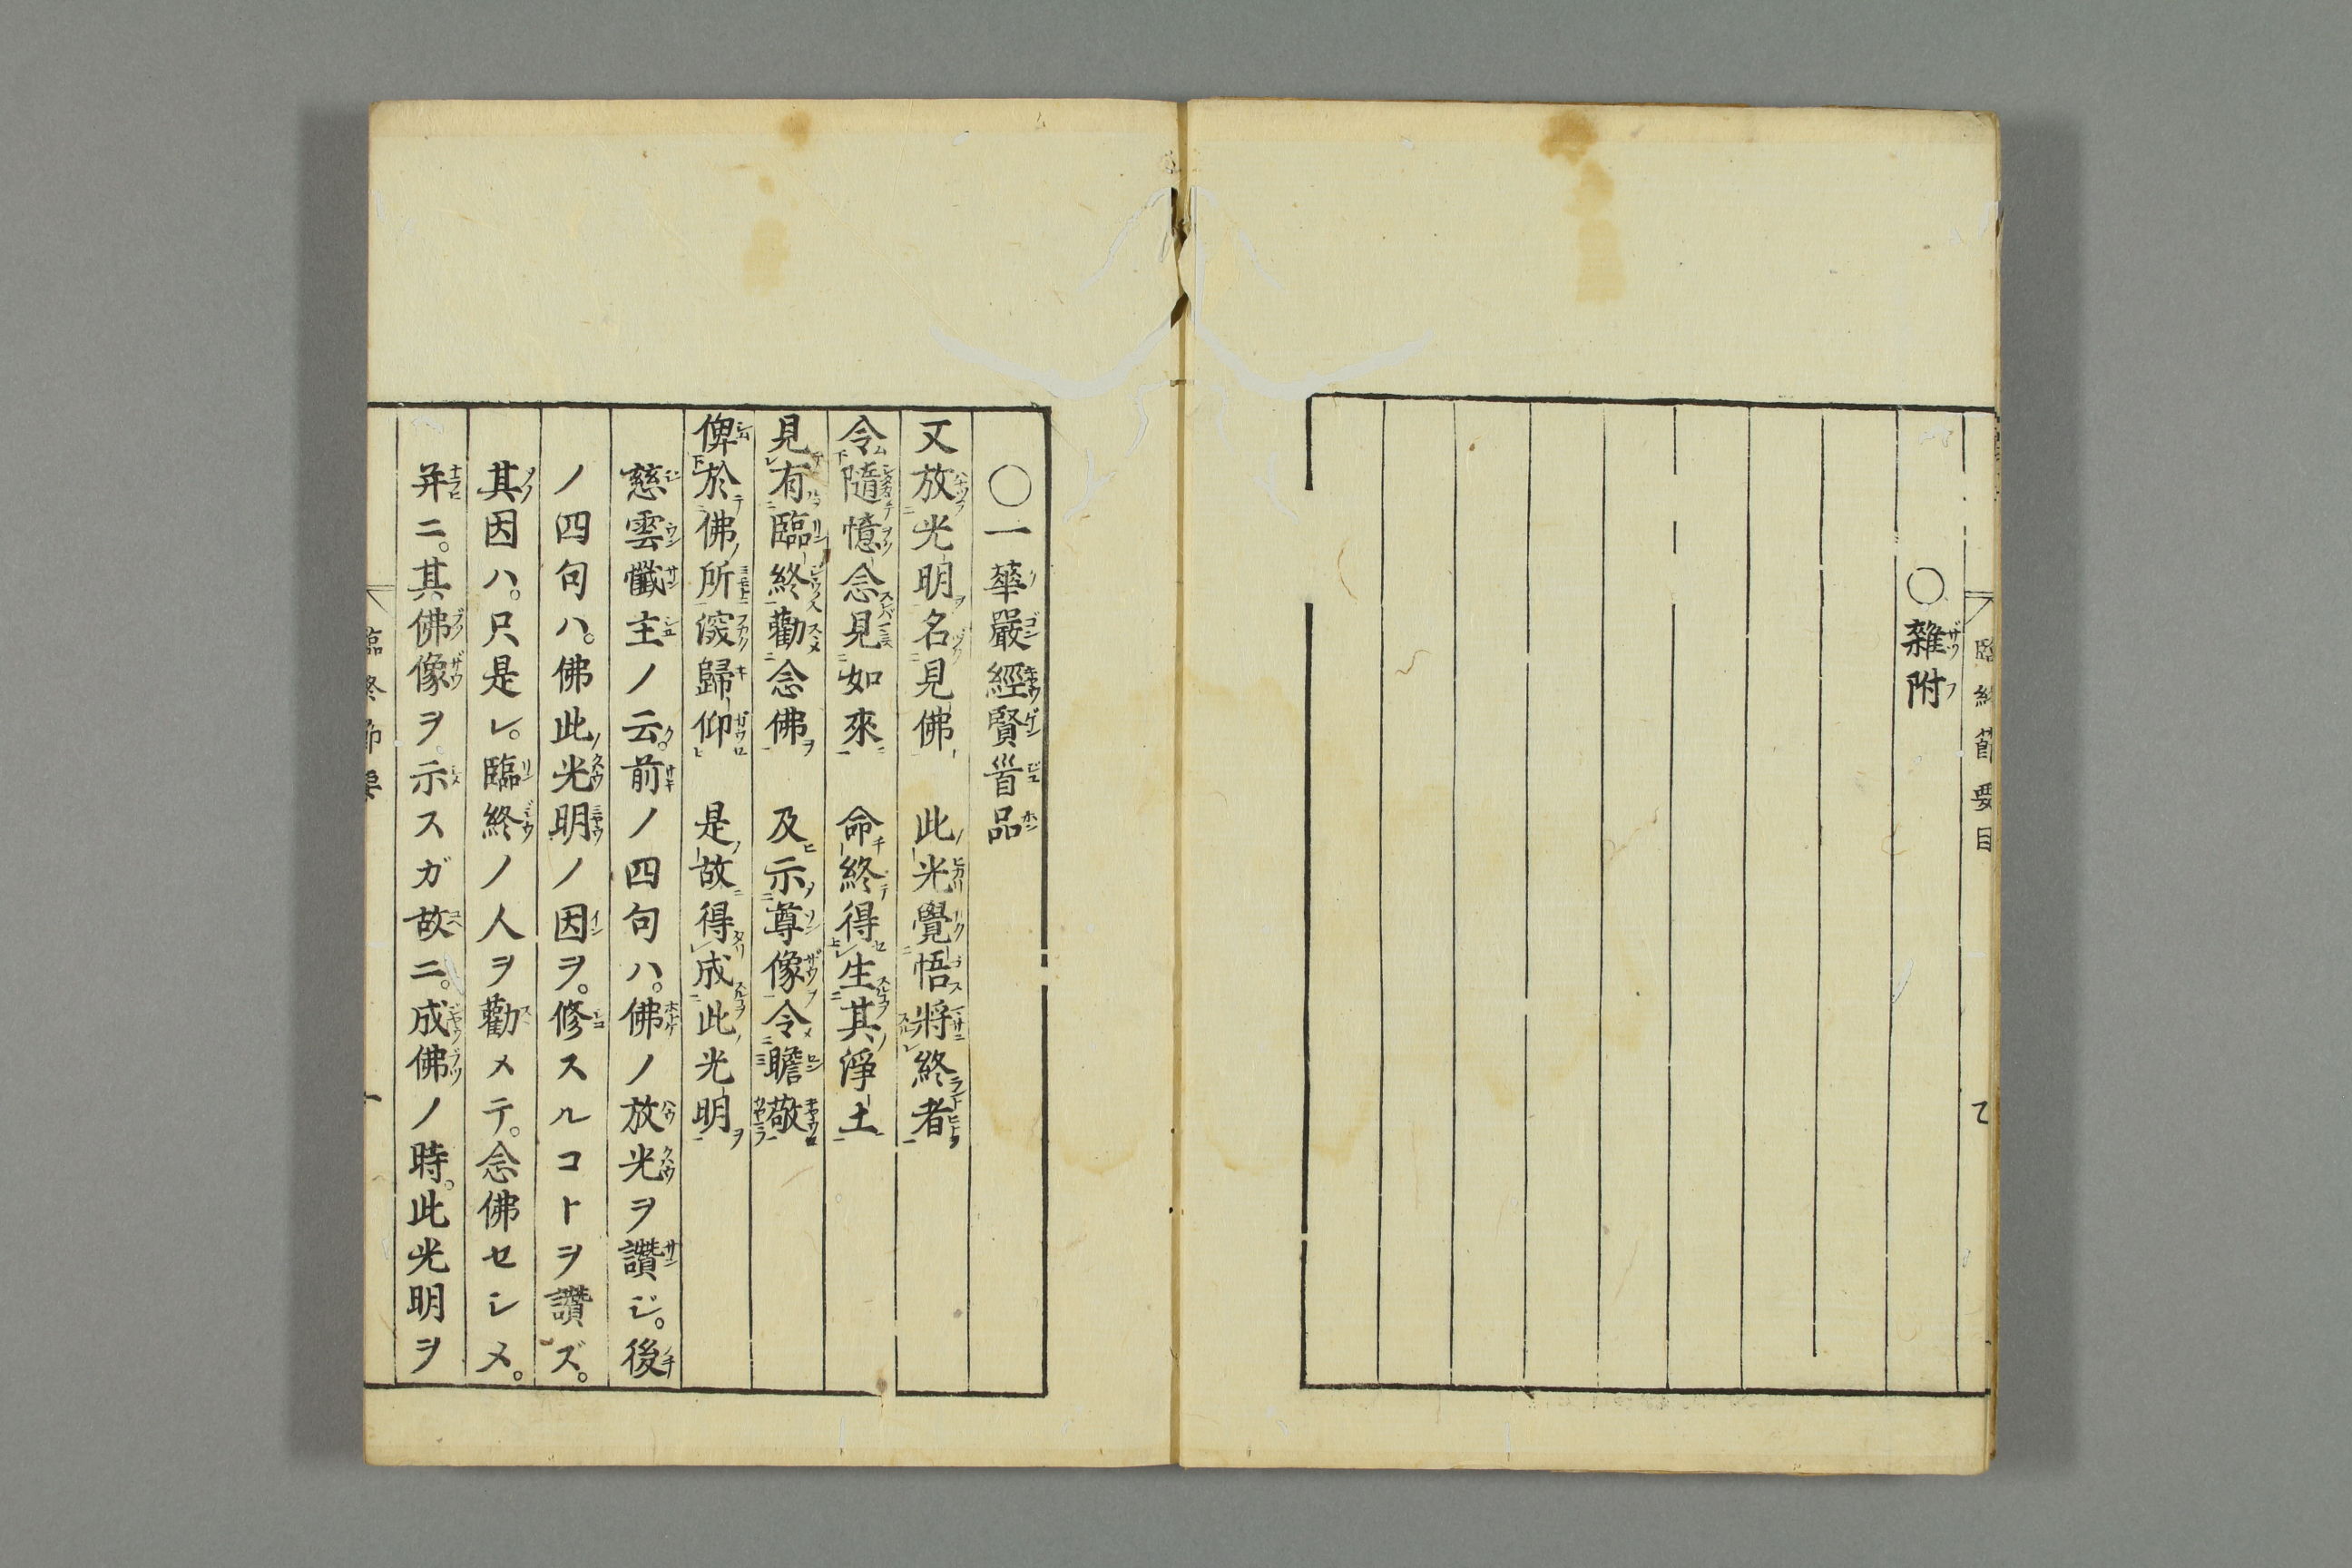 臨終節要目
○雜附
○一華嚴經賢首品
又放光明名見佛　此光覺悟將終者
令隨憶念見如來　命終得生其淨土
見有臨終勸念佛　及示尊像令瞻敬
俾於佛所深歸仰　是故得成此光明
慈雲懺主ノ云。前ノ四句ハ。佛ノ放光ヲ讚ジ。後
ノ四句ハ。佛此光明ノ因ヲ。修スルコトヲ讚ズ。
其因ハ。只是レ。臨終ノ人ヲ勸メテ。念佛セシメ。
并ニ。其佛像ヲ。示スガ故ニ。成佛ノ時。此光明ヲ
臨終節要